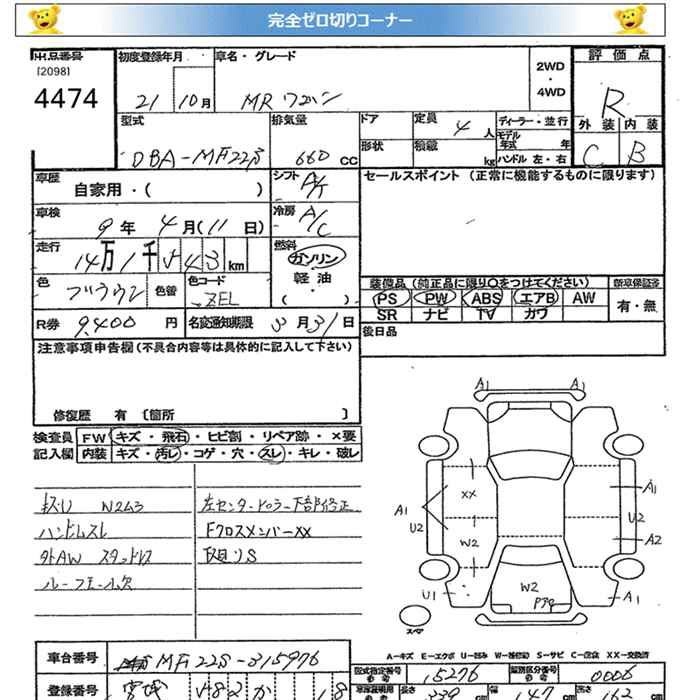 完全ゼロ切りコーナー
出品番号
[2098]
4474
初度登録年月
21 10月
車名・グレード
MRワゴン
2WD
・
4WD
評価点
R
外装 内装
C B
型式
DBA-MF22S
排気量
660 CC
ドア
形状
定員 4人
積載 kg
ディーラー・並行
モデル年式 年
ハンドル 左・右
車歴
自家用・( )
シフト
冷房 A/C
セールスポイント (正常に機能するものに限ります)
車検
9年 4月(11日)
走行
14万1千 543 km
燃料
ガソリン
・
軽油
( )
色 ブラウン 色替
色コード ZEL
R券 9,400円
名変通知期限 3月31日
装備品 (純正品に限り○をつけてください)
PS PW ABS エアB AW
SR ナビ TV カワ
新車保証書
有・無
後日品
注意事項申告欄(不具合内容等は具体的に記入して下さい)
修復歴 有 〔箇所 〕
検査員
記入欄
FW キズ・飛石・ヒビ割・リペア跡・×要
内装 キズ・汚レ・コゲ・穴・スレ・キレ・破レ
ハンドルスレ
外AW スタッドレス
左センターピラー下部修正
FクロスメンバーXX
下廻りS
A1 A1
XX
A1
U2
W2
A1
U2
A2
W2
U1
A1
スペア
A-キズ E-エクボ U-凹み W-補修跡 S-サビ C-腐食 XX-交換済
車台番号
MF22S-315976
登録番号
宮城
型式指定番号
参考
15276
類別区分番号
参考
0006
長さ 339
幅 147
高さ 162